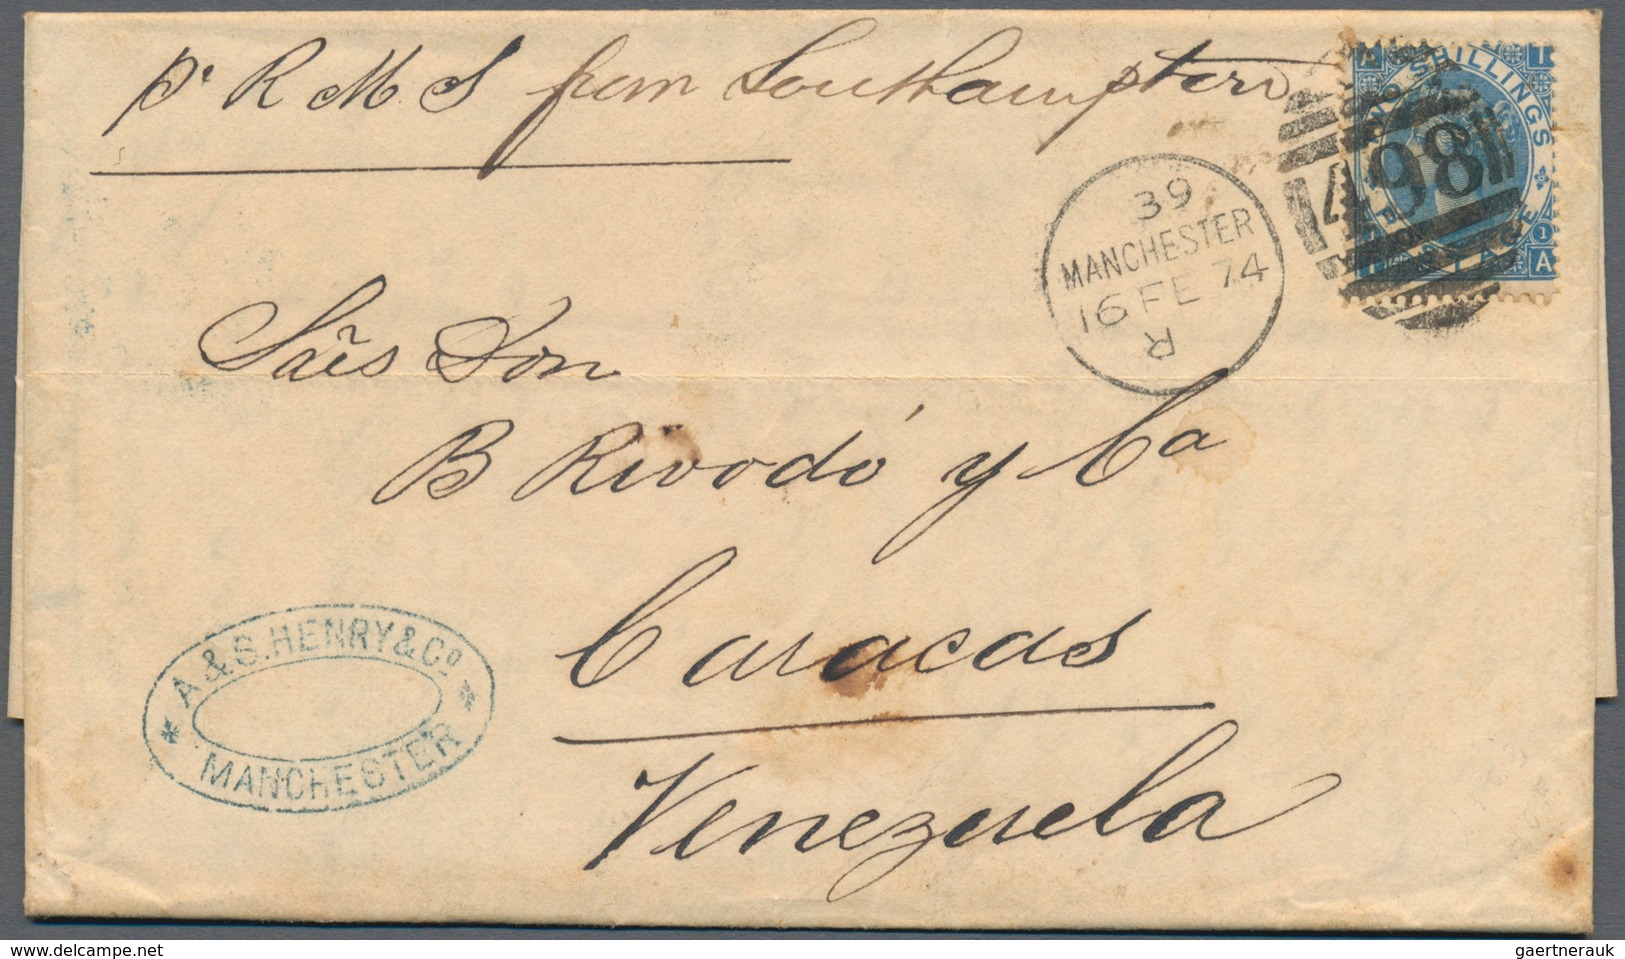 pr R M S from Southampton
A T
TWO SHILLINGS
POSTAGE
1
A
498
39
MANCHESTER
16 FE 74
R
Sñes Don
B Rivodó y Ca
Caracas
Venezuela
A & S. HENRY & Co
* MANCHESTER *
www.delcampe.net
gaertnerauk